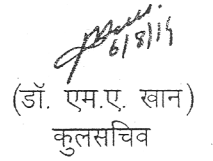 6/8/14
(डॉ. एम.ए. खान)
कुलसचिव